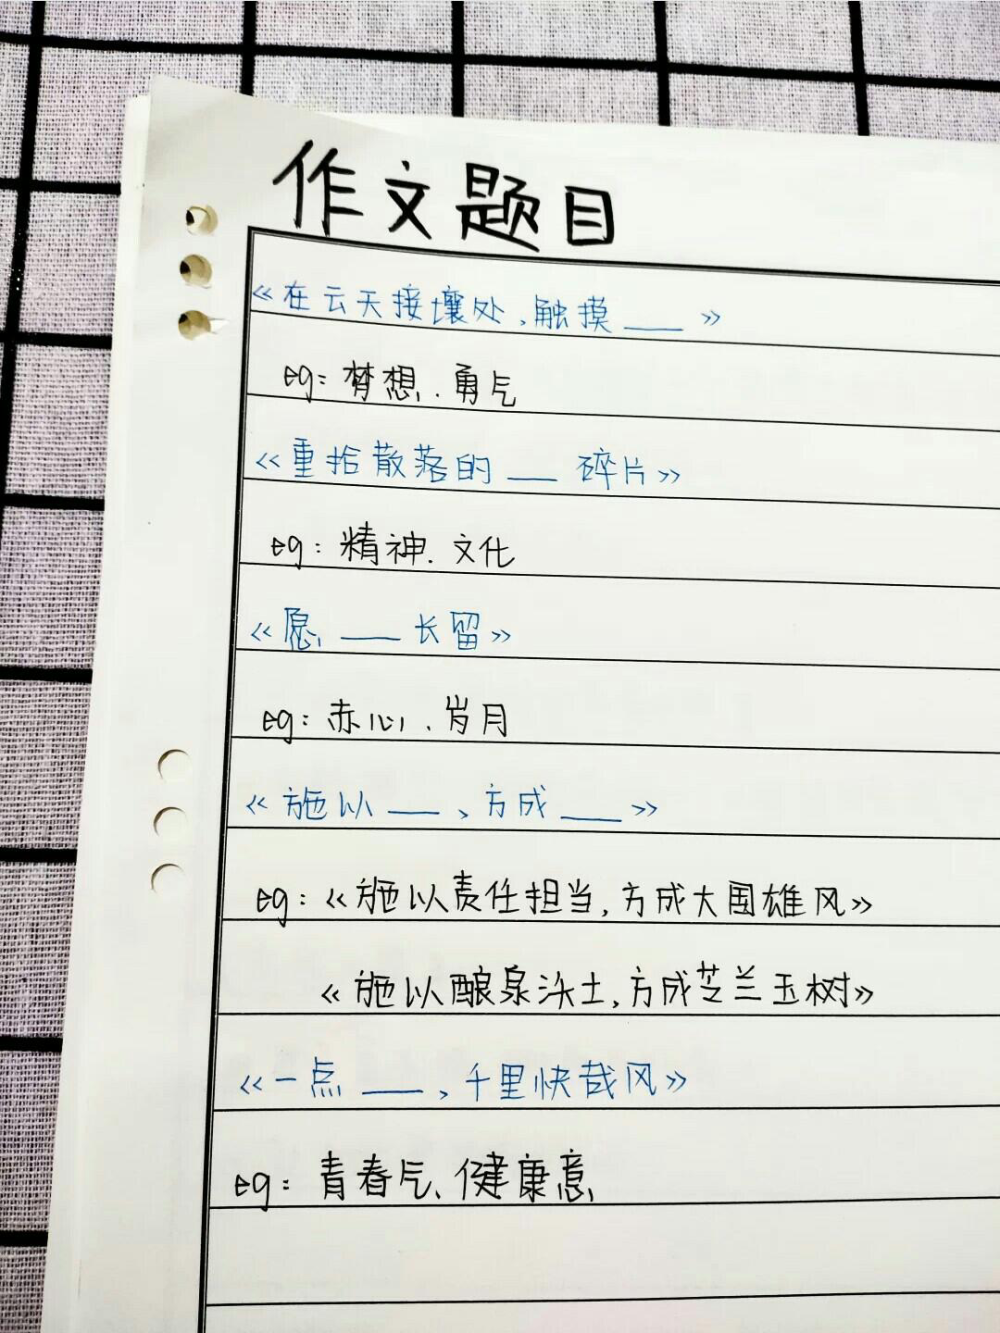 作文题目
《在云天接壤处,触摸___》
eg:梦想、勇气
《重拾散落的___碎片》
eg:精神、文化
《愿___长留》
eg:赤心、岁月
《施以___、方成___》
eg:《施以责任担当,方成大国雄风》
《施以酿泉沃土,方成芝兰玉树》
《一点___,千里快哉风》
eg:青春气、健康意